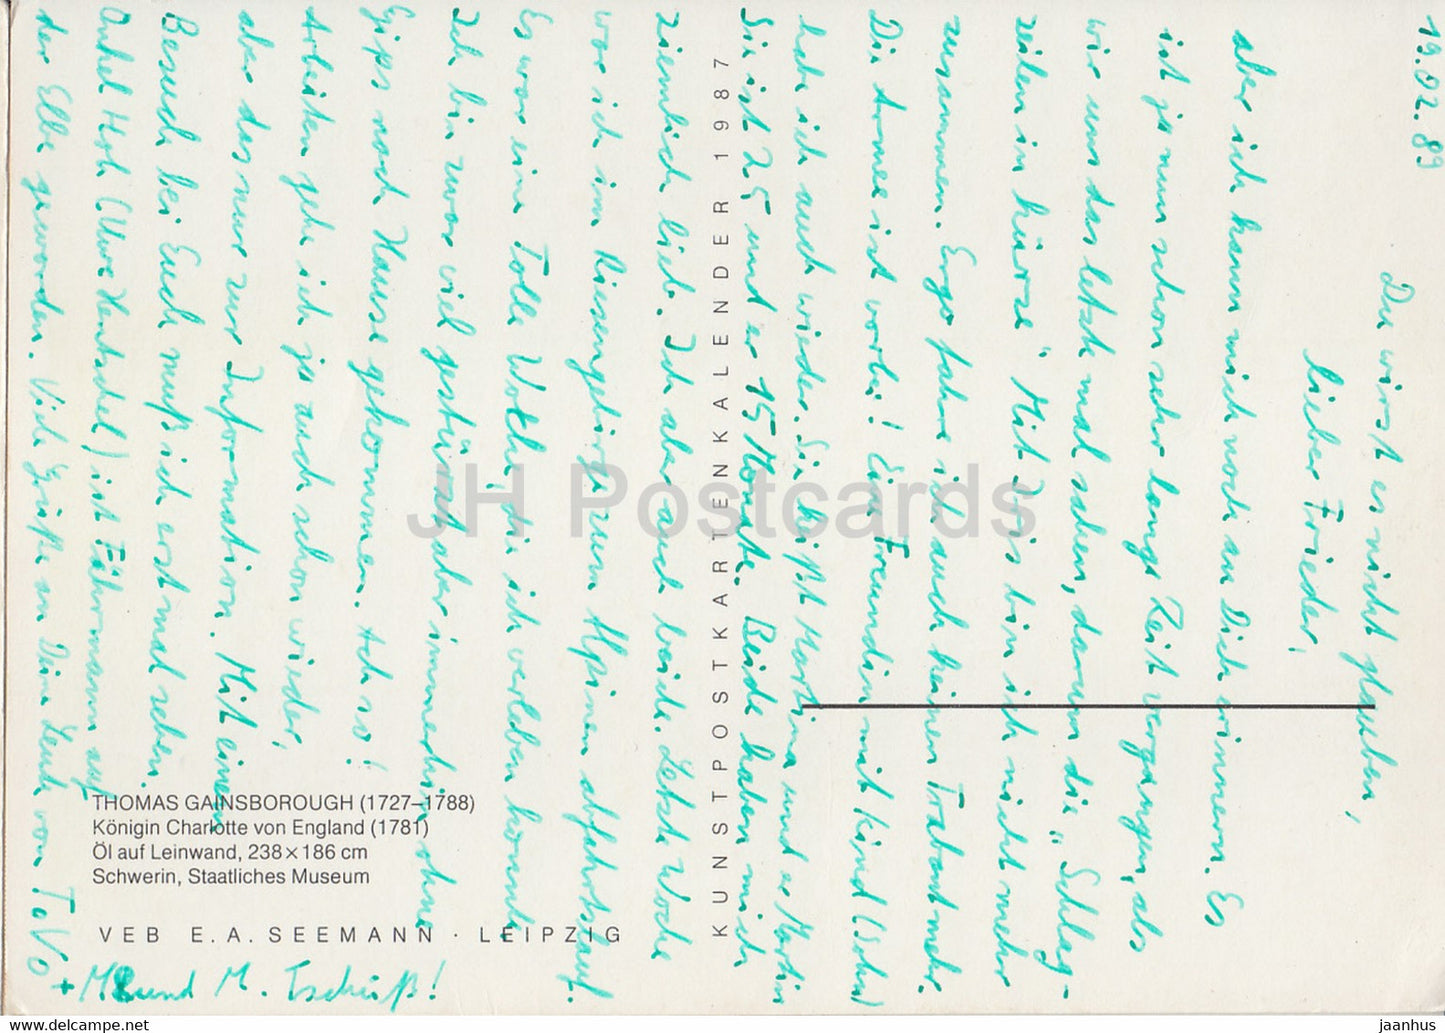 19.02.89
Du wirst es nicht glauben,
lieber Frieder,
aber ich kann mich noch an Dich erinnern. Es
ist ja nun schon sehr lange Zeit vergangen, als
wir uns das letzte mal sahen, darum die „Schlag-
zeilen in kürze" Mit Iris bin ich nicht mehr
zusammen. Ergo fahre ich auch keinen Trabant mehr.
Die Armee ist vorbei! Eine Freundin mit Kind (Sohn)
habe ich auch wieder. Sie heißt Martina und er Martin
Sie ist 25 und er 15 Monate. Beide haben mich
ziemlich lieb. Ich aber auch beide. Letzte Woche
war ich im Riesengebirge zum Alpinen abfahrtslauf.
Es war eine Tolle Woche, die ich verleben konnte
Ich bin zwar viel gestürzt aber immerhin ohne
Gips nach Hause gekommen. Ach so!
Arbeiten gehe ich ja auch schon wieder,
aber das nur zur Information. Mit einem
Besuch bei Euch muß ich erst mal sehen.
(Uwe Hentschel) ist Fährmann auf
der Elbe geworden. Viele Grüße an Deine Leute von ToVo
+ M. und M. Tschüß!
KUNSTPOSTKARTENKALENDER 1987
THOMAS GAINSBOROUGH (1727–1788)
Königin Charlotte von England (1781)
Öl auf Leinwand, 238×186 cm
Schwerin, Staatliches Museum
VEB E.A. SEEMANN · LEIPZIG
JH Postcards
www.delcampe.net
jaanhus